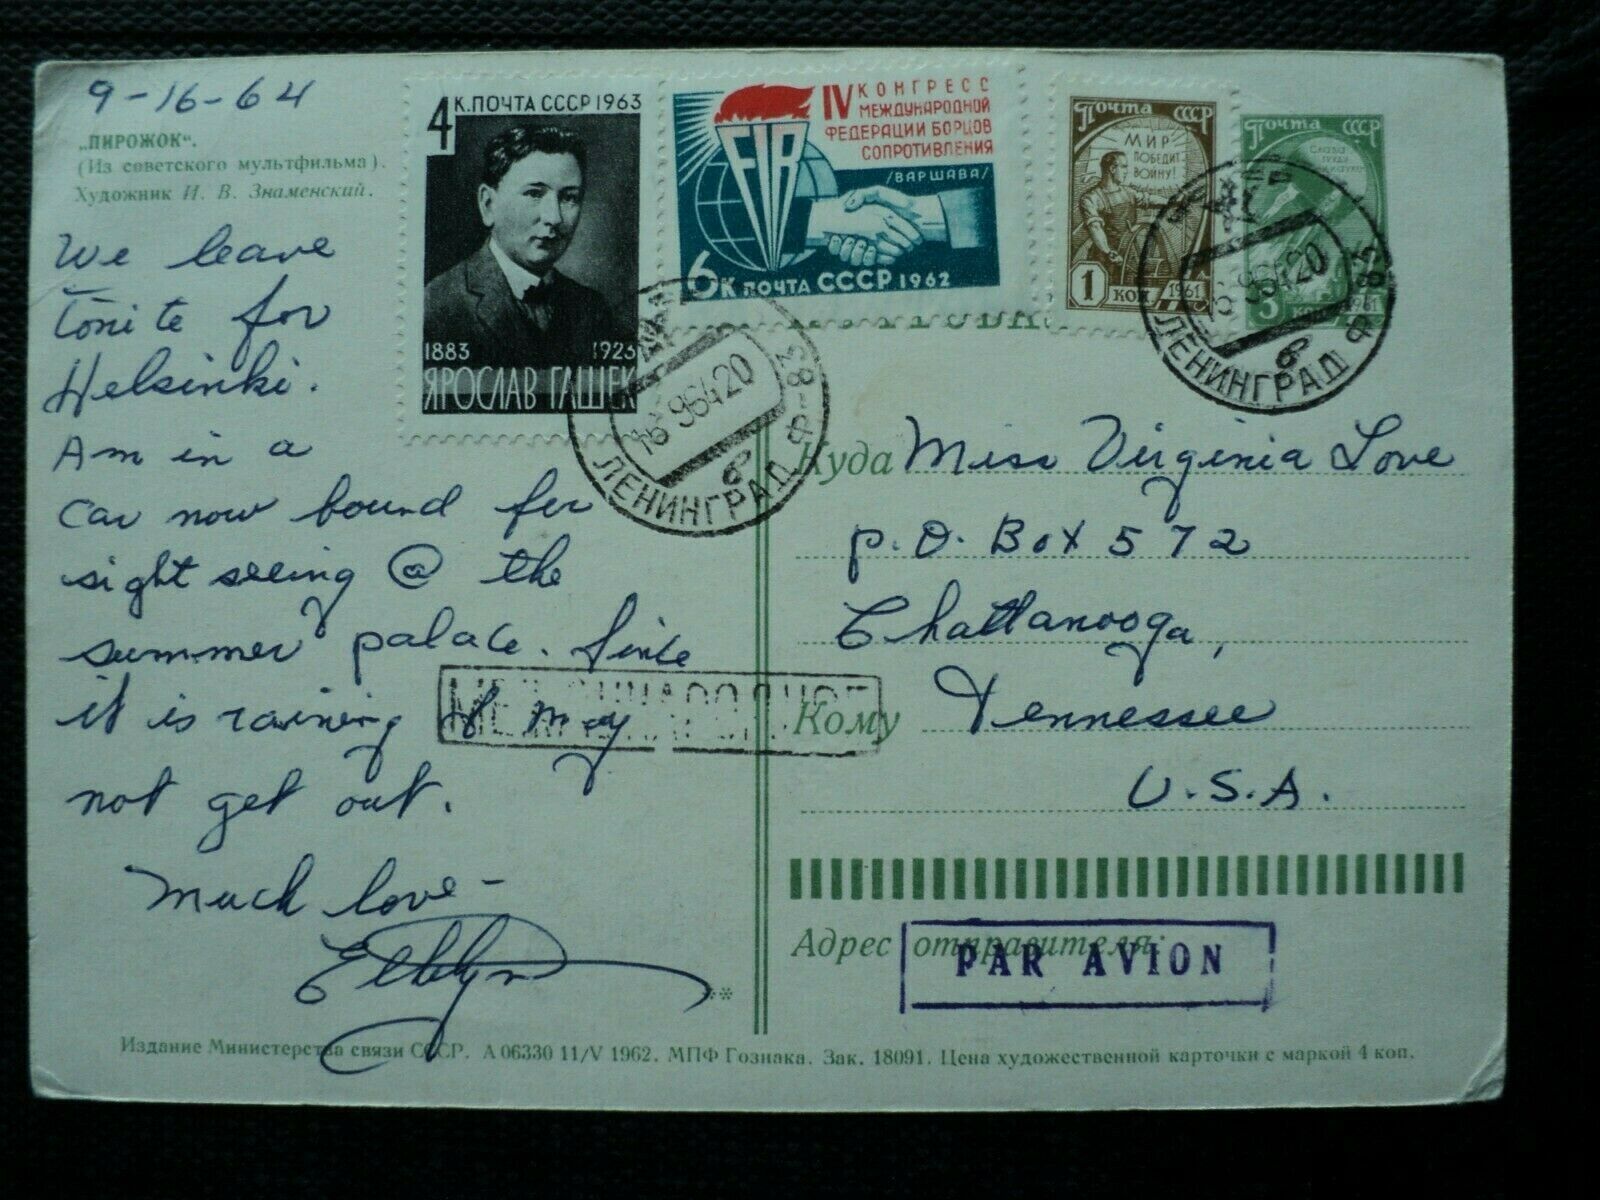 9-16-64
„ПИРОЖОК“.
(Из советского мультфильма).
Художник И. В. Знаменский.
We leave
tonite for
Helsinki.
Am in a
car now bound for
sight seeing @ the
summer palace. Since
it is raining I may
not get out.
Much love –
4 К. ПОЧТА СССР 1963
1883 1923
ЯРОСЛАВ ГАШЕК
IV КОНГРЕСС
МЕЖДУНАРОДНОЙ
ФЕДЕРАЦИИ БОРЦОВ
СОПРОТИВЛЕНИЯ
/ВАРШАВА/
FIR
6 К ПОЧТА СССР 1962
Почта СССР
МИР
ПОБЕДИТ
ВОЙНУ!
1 КОП 1961
Почта СССР
Слава
труду
3 коп 1961
ЛЕНИНГРАД Ф-83
ЛЕНИНГРАД Ф-83
16 9 64 20
9 64 20
МЕЖДУНАРОДНОЕ
Куда Miss Virginia Love
P.O. Box 572
Chattanooga,
Кому Tennessee
U.S.A.
Адрес отправителя:
PAR AVION
**
Издание Министерства связи СССР. А 06330 11/V 1962. МПФ Гознака. Зак. 18091. Цена художественной карточки с маркой 4 коп.